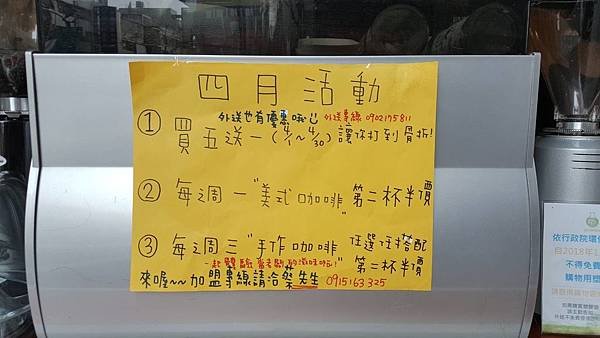 四月活動
外送也有優惠哦 外送專線 0902175811
① 買五送一(4/1~4/30)讓你打到骨折!
② 每週一"美式咖啡"第二杯半價
③ 每週三"手作咖啡"任選任搭配
一起體驗當老闆的滋味吧! 第二杯半價
來喔~~加盟專線請洽蔡先生 0915163325
依行政院環
自2018年1
不得免費
購物用塑